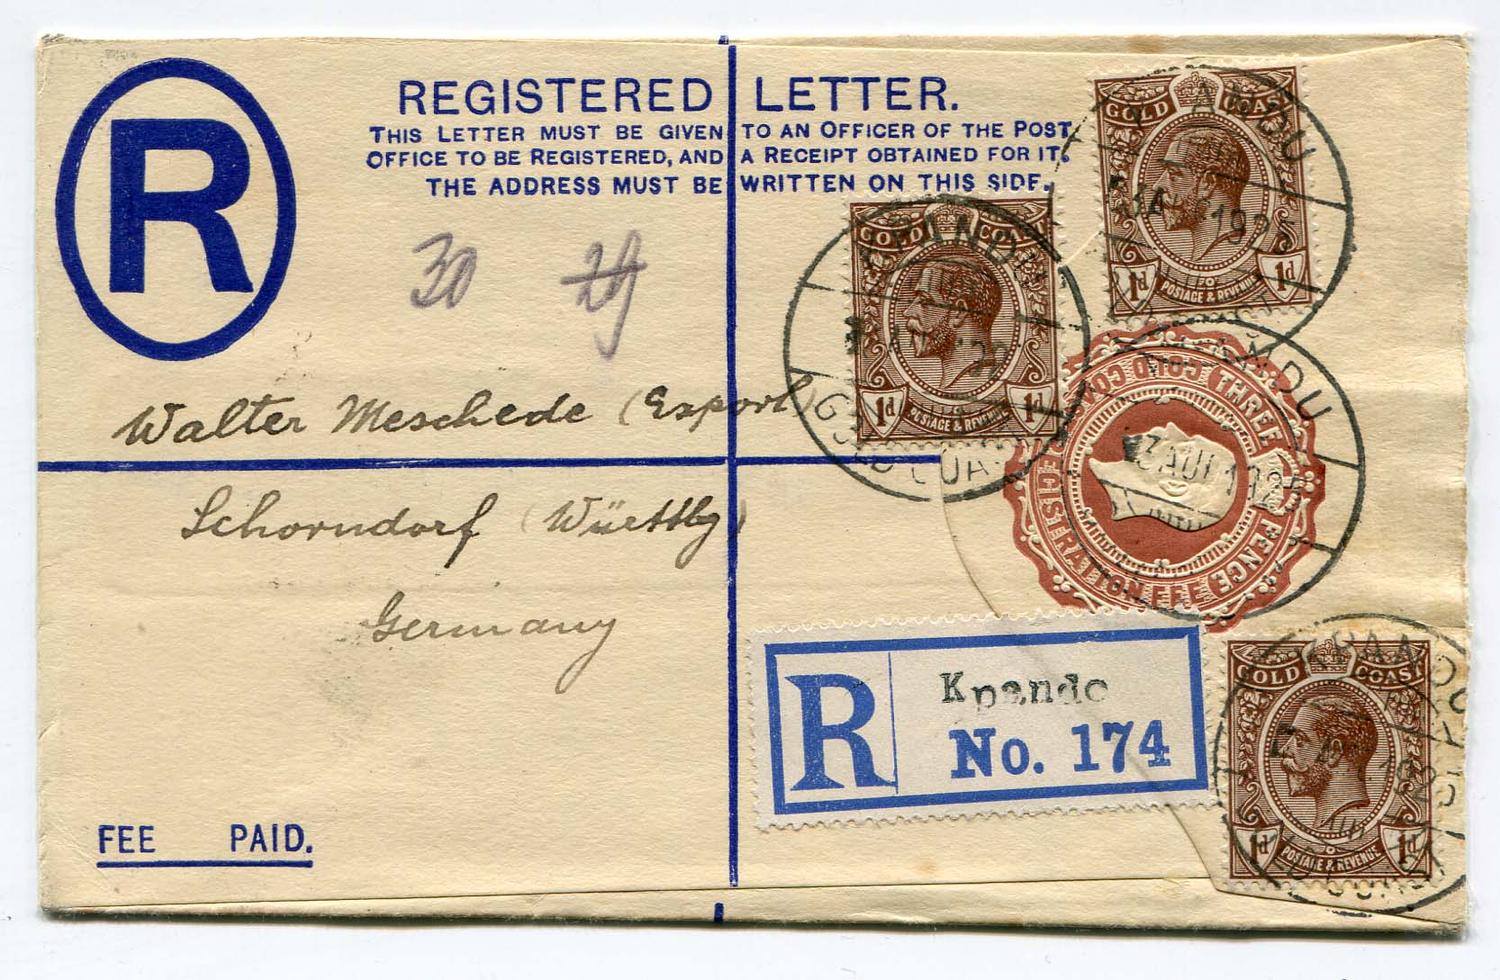 R
REGISTERED LETTER.
THIS LETTER MUST BE GIVEN TO AN OFFICER OF THE POST
OFFICE TO BE REGISTERED, AND A RECEIPT OBTAINED FOR IT.
THE ADDRESS MUST BE WRITTEN ON THIS SIDE.
30 29
Walter Meschede (Export)
Schorndorf (Württbg)
Germany
FEE PAID.
GOLD COAST
1d 1d
POSTAGE & REVENUE
GOLD COAST
1d 1d
POSTAGE & REVENUE
GOLD COAST THREE PENCE
REGISTRATION FEE
R
Kpando
No. 174
GOLD COAST
1d 1d
POSTAGE & REVENUE
KPANDU
GOLD COAST